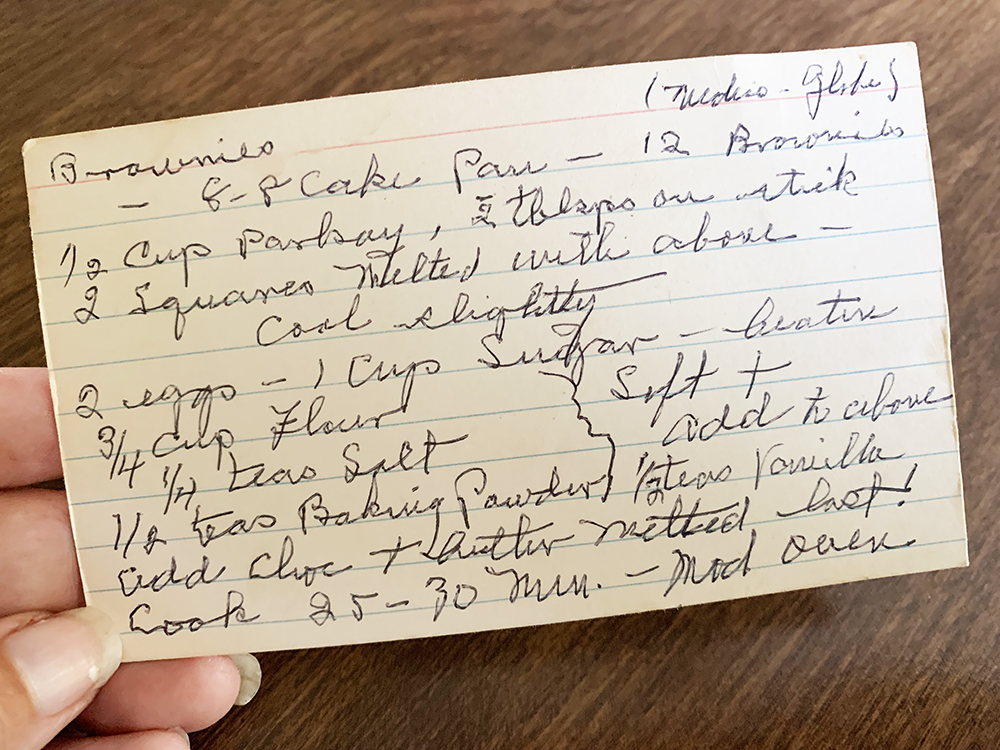 Brownies
- 8-8 Cake Pan - 12 Brownies
1/2 Cup Parkay, thlsps on stick
2 Squares Melted with above -
Cool slightly
2 eggs - 1 Cup Sugar - beaten
3/4 Cup Flour Soft +
1/2 teas Salt add to above
1/2 teas Baking Powder 1/2 teas Vanilla
add Choc + butter melted last!
Cook 25-30 Min. - Mod oven